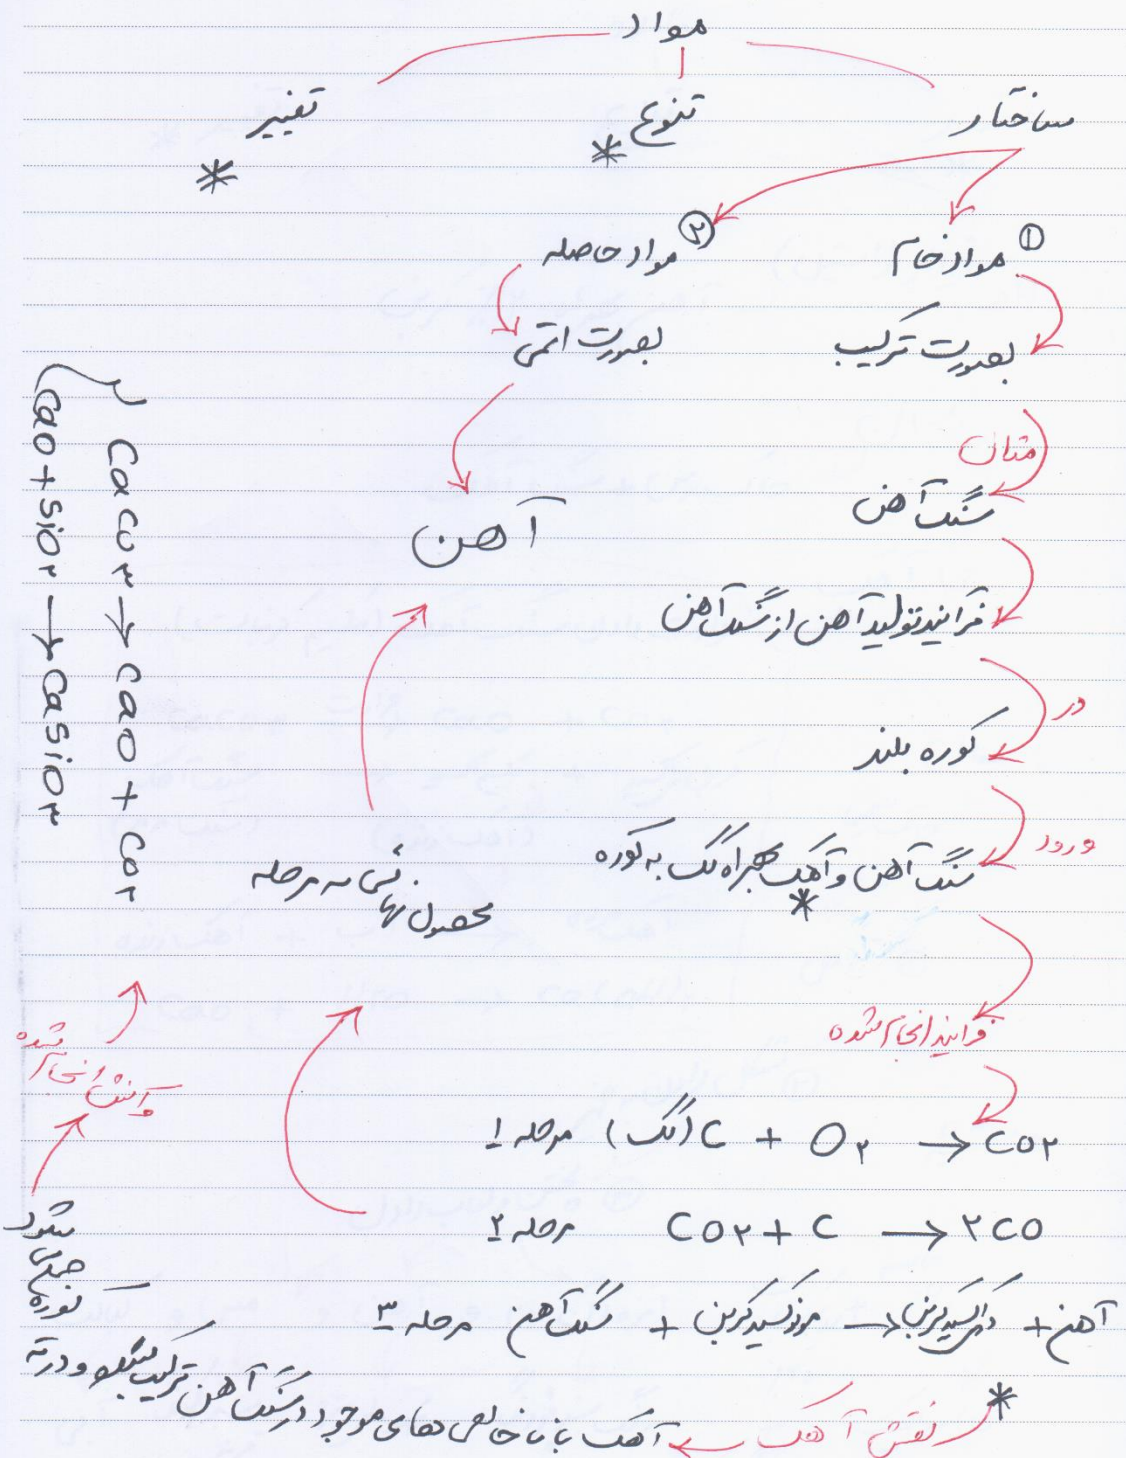 مواد
ساختار تنوع تغییر
* *
① مواد خام ② مواد حاصله
بصورت ترکیب بصورت اتمی
مثال
سنگ آهن
آهن
فرآیند تولید آهن از سنگ آهن
در
کوره بلند
ورود
سنگ آهن و آهک بهمراه کک به کوره
*
محصول نهائی سه مرحله
فرایند انجام شده
مرحله ۱ (کک) C + O۲ → CO۲
مرحله ۲ CO۲ + C → ۲CO
مرحله ۳ سنگ آهن + مونوکسیدکربن → دی اکسیدکربن + آهن
* نقش آهک ← آهک با ناخالصی های موجود در سنگ آهن ترکیب میشود و در ته
کوره
جمع
میشود
واکنش انجام شده
CaCO۳ → CaO + CO۲
CaO + SiO۲ → CaSiO۳